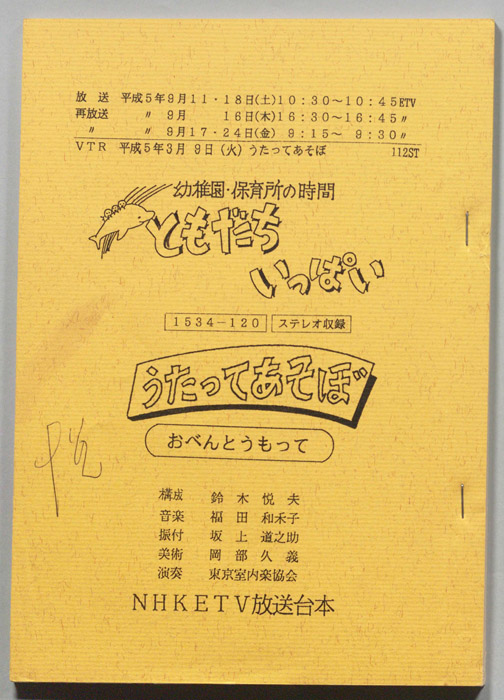 放　送　平成5年9月11・18日(土)10：30～10：45ETV
再放送　〃　9月　16日(木)16：30～16：45〃
〃　〃　9月17・24日(金)　9：15～　9：30〃
VTR　平成5年3月　9日（火）うたってあそぼ　112ST
幼稚園・保育所の時間
ともだち
いっぱい
1534－120　ステレオ収録
うたってあそぼ
おべんとうもって
構成　鈴木悦夫
音楽　福田和禾子
振付　坂上道之助
美術　岡部久義
演奏　東京室内楽協会
NHKETV放送台本